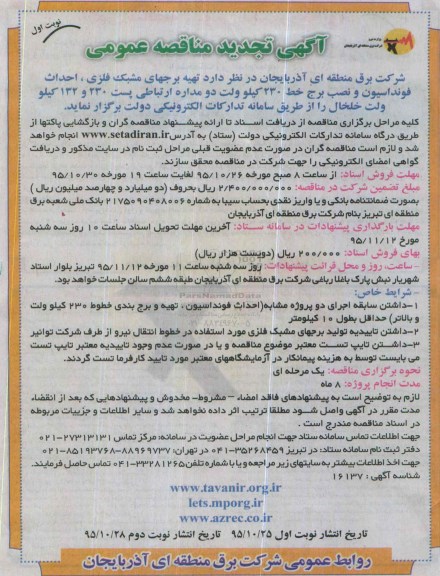 نوبت اول
آگهی تجدید مناقصه عمومی
شرکت برق منطقه ای آذربایجان در نظر دارد تهیه برجهای مشبک فلزی ، احداث
فونداسیون و نصب برج خط ۲۳۰کیلو ولت دو مداره ارتباطی پست ۲۳۰ و ۱۳۲ کیلو
ولت خلخال را از طریق سامانه تدارکات الکترونیکی دولت برگزار نماید.
کلیه مراحل برگزاری مناقصه از دریافت اسناد تا ارائه پیشنهاد مناقصه گران و بازگشایی پاکتها از
طریق درگاه سامانه تدارکات الکترونیکی دولت (ستاد) به آدرس www.setadiran.ir انجام خواهد
شد و لازم است مناقصه گران در صورت عدم عضویت قبلی مراحل ثبت نام در سایت مذکور و دریافت
گواهی امضای الکترونیکی را جهت شرکت در مناقصه محقق سازند.
مهلت فروش اسناد: از ساعت ۸ صبح مورخه ۹۵/۱۰/۲۶ لغایت ساعت ۱۹ مورخه ۹۵/۱۰/۳۰
مبلغ تضمین شرکت در مناقصه: ۲/۴۰۰/۰۰۰/۰۰۰ ریال بحروف (دو میلیارد و چهارصد میلیون ریال )
بصورت ضمانتنامه بانکی و یا واریز نقدی بحساب سیبا به شماره ۲۱۷۵۰۹۰۴۰۸۰۰۶ بانک ملی شعبه برق
منطقه ای تبریز بنام شرکت برق منطقه ای آذربایجان
مهلت بارگذاری پیشنهادات در سامانه ستاد: آخرین مهلت تحویل اسناد ساعت ۱۰ روز سه شنبه
مورخ ۹۵/۱۱/۱۲
بهای فروش اسناد: ۲۰۰/۰۰۰ ریال (دویست هزار ریال)
- ساعت، روز و محل قرائت پیشنهادات: روز سه شنبه ساعت ۱۱ مورخه ۹۵/۱۱/۱۲ تبریز بلوار استاد
شهریار نبش پارک باغلار باغی شرکت برق منطقه ای آذربایجان طبقه ششم سالن جلسات خواهد بود.
- شرایط خاص:
۱-داشتن سابقه اجرای دو پروژه مشابه(احداث فونداسیون ، تهیه و برج بندی خطوط ۲۳۰ کیلو ولت
و بالاتر) حداقل بطول ۱۰ کیلومتر
۲-داشتن تاییدیه تولید برجهای مشبک فلزی مورد استفاده در خطوط انتقال نیرو از طرف شرکت توانیر
۳-داشتن تایپ تست معتبر موضوع مناقصه و یا در صورت عدم وجود تاییدیه معتبر تایپ تست
می بایست توسط به هزینه پیمانکار در آزمایشگاههای معتبر مورد تایید کارفرما تست گردند.
نحوه برگزاری مناقصه: یک مرحله ای
مدت انجام پروژه: ۸ ماه
لازم به توضیح است به پیشنهادهای فاقد امضاء – مشروط- مخدوش و پیشنهادهایی که بعد از انقضاء
مدت مقرر در آگهی واصل شود مطلقا ترتیب اثر داده نخواهد شد و سایر اطلاعات و جزییات مربوطه
در اسناد مناقصه مندرج است .
جهت اطلاعات تماس سامانه ستاد جهت انجام مراحل عضویت در سامانه: مرکز تماس ۲۷۳۱۳۱۳۱-۰۲۱
دفتر ثبت نام سامانه ستاد: در تبریز ۳۵۲۶۸۴۵۹-۰۴۱ در تهران: ۸۸۹۶۹۷۳۷-۸۵۱۹۳۷۶۸-۰۲۱
جهت اخذ اطلاعات بیشتر به سایتهای زیر مراجعه و یا با شماره تلفن ۳۳۲۸۱۲۶۵-۰۴۱ تماس حاصل فرمایند.
شناسه آگهی : ۱۶۱۳۷
www.tavanir.org.ir
lets.mporg.ir
www.azrec.co.ir
تاریخ انتشار نوبت اول ۹۵/۱۰/۲۵ تاریخ انتشار نوبت دوم ۹۵/۱۰/۲۸
روابط عمومی شرکت برق منطقه ای آذربایجان